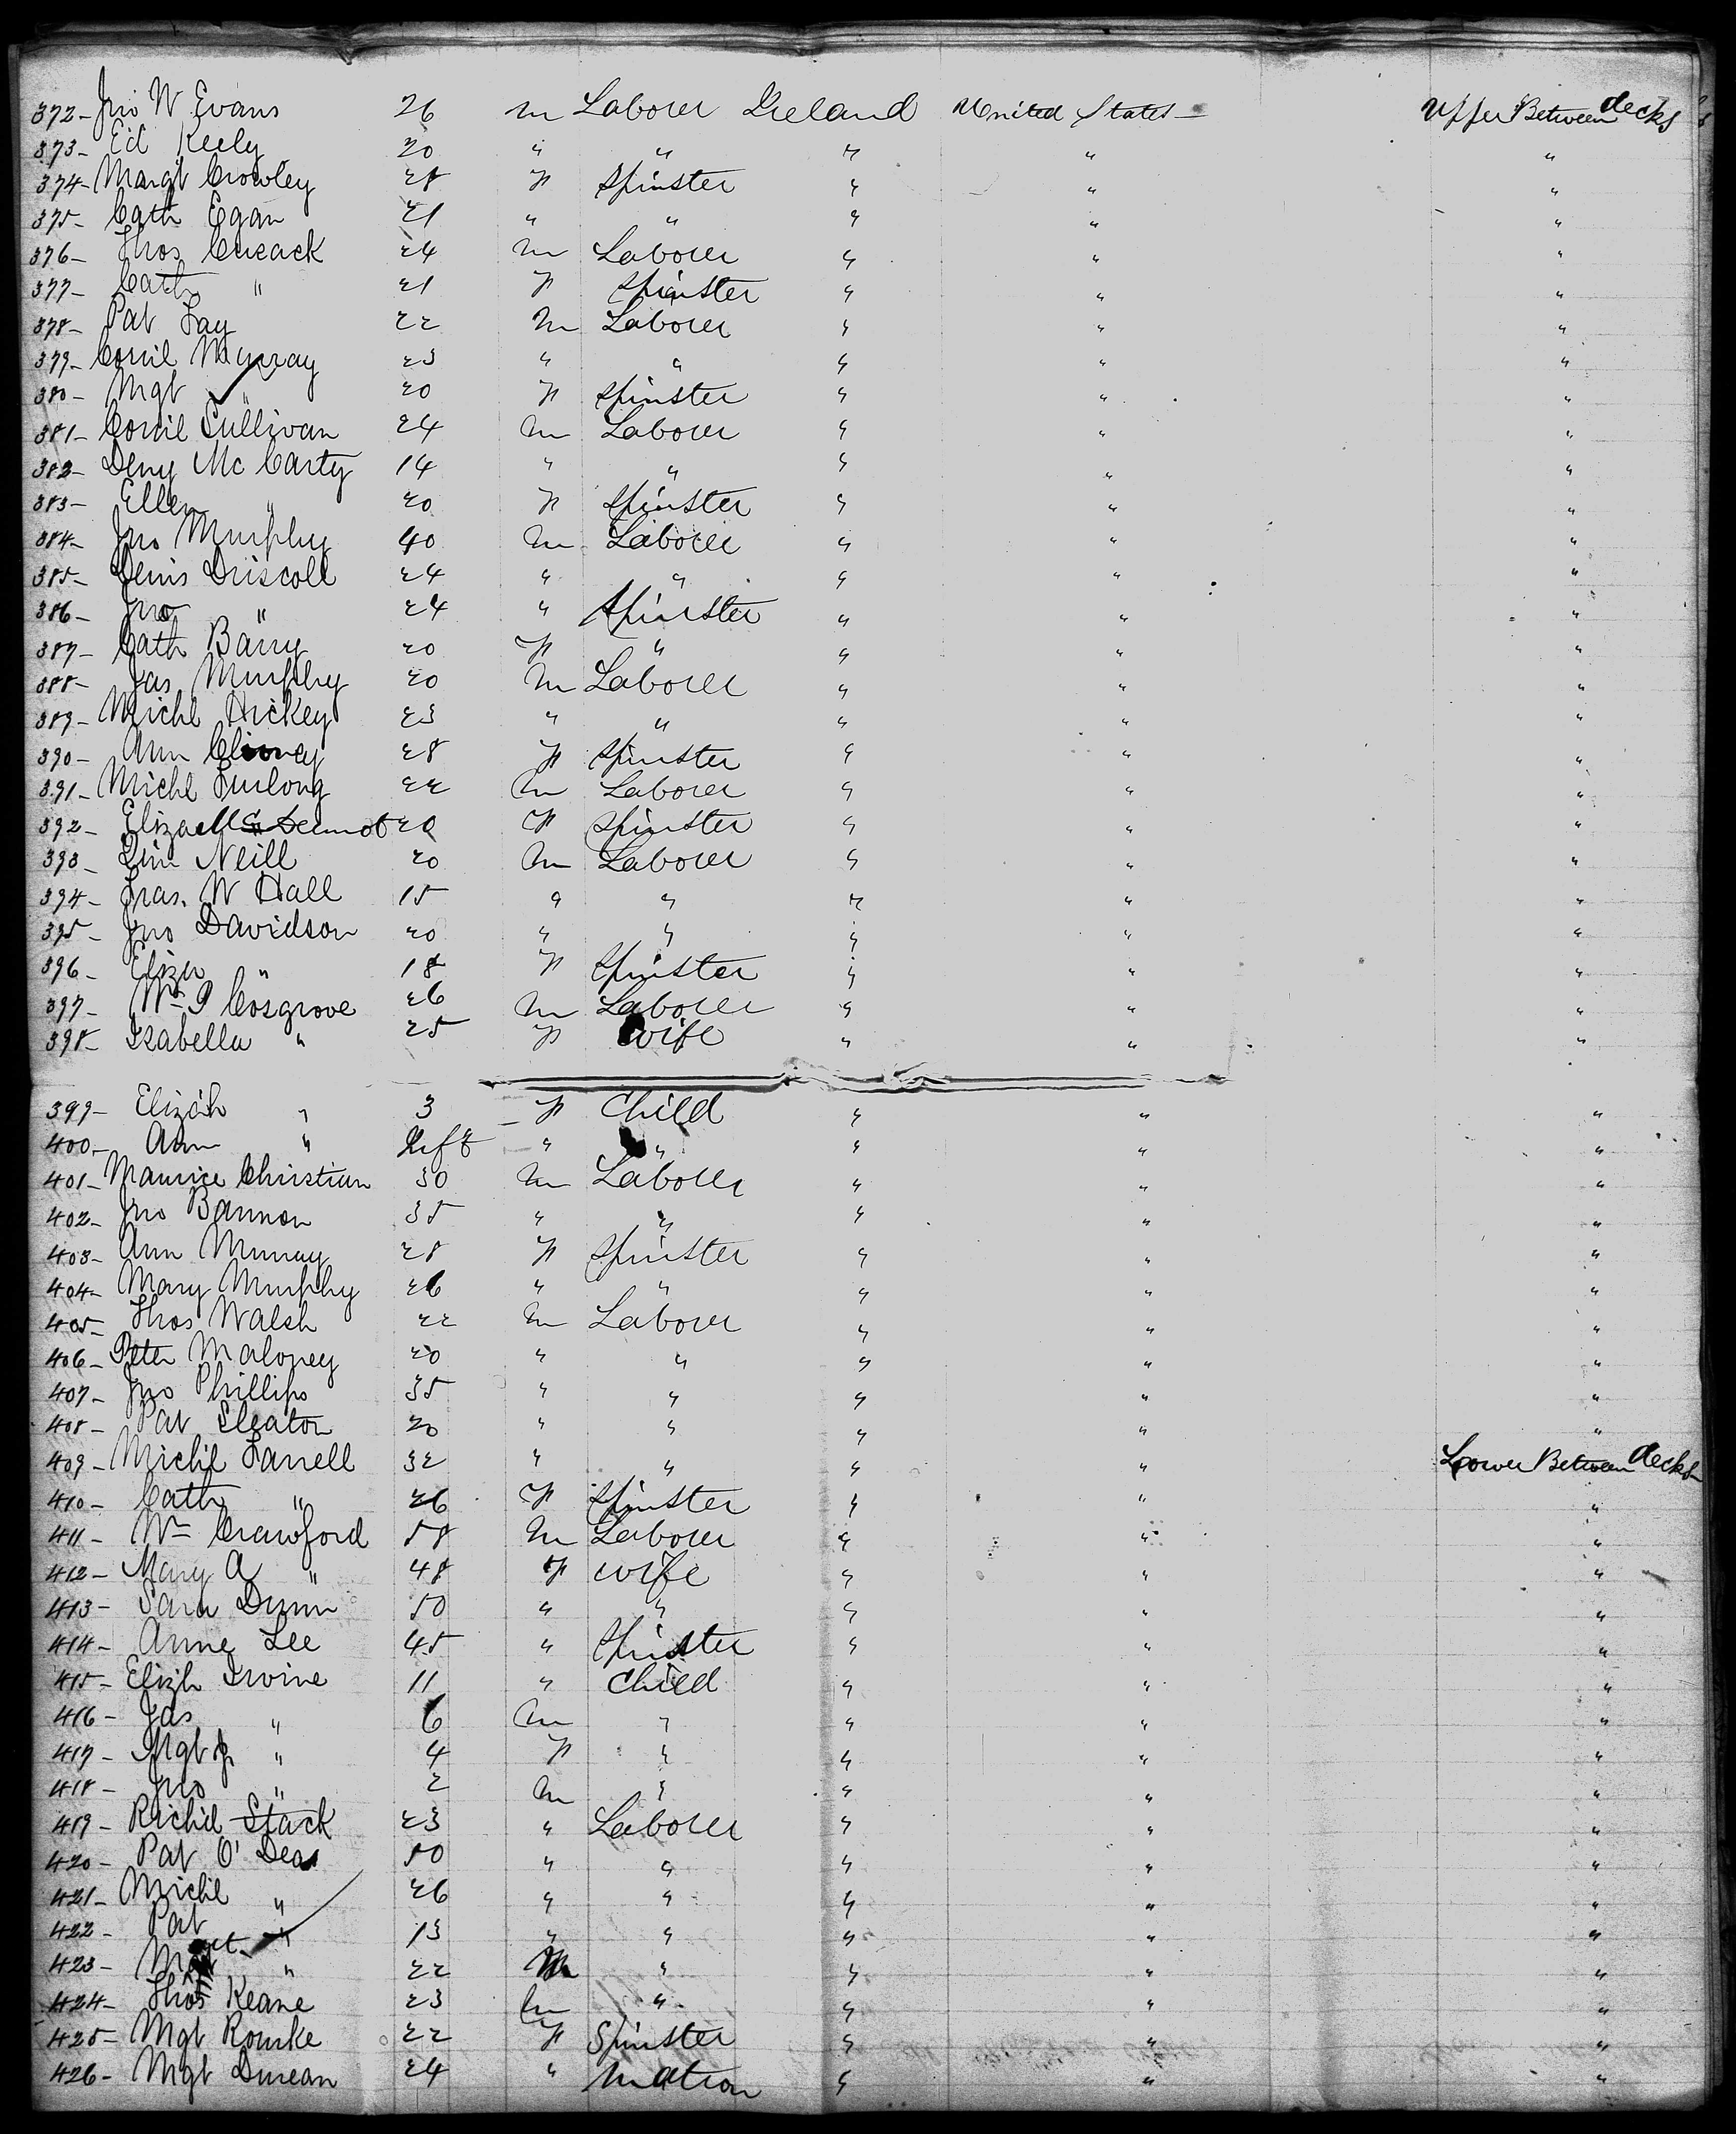 372- Jno W Evans 26 m Laborer Ireland United States - Upper Between decks
373- Ed Keely 20 " " " " "
374- Margt Crowley 28 F Spinster " " "
375- Cath Egan 21 " " " " "
376- Thos Cusack 24 m Laborer " " "
377- Cath " 21 F Spinster " " "
378- Pat Fay 22 m Laborer " " "
379- Cornl Murray 23 " " " " "
380- Mgt " 20 F Spinster " " "
381- Cornl Sullivan 24 m Laborer " " "
382- Deny Mc Carty 14 " " " " "
383- Ellen " 20 F Spinster " " "
384- Jno Murphy 40 m Laborer " " "
385- Denis Driscoll 24 " " " " "
386- Jno " 24 " Spinster " " "
387- Cath Barry 20 F " " " "
388- Jas Murphy 20 m Laborer " " "
389- Michl Hickey 23 " " " " "
390- Ann 28 F Spinster " " "
391- Michl Furlong 22 m Laborer " " "
392- Eliza McDermot 20 F Spinster " " "
393- Neill 20 m Laborer " " "
394- Fras. W Hall 15 " " " " "
395- Jno Davidson 20 " " " " "
396- Eliza " 18 F Spinster " " "
397- Wm P Cosgrove 26 m Laborer " " "
398- Isabella " 25 F wife " " "
399- Elizah " 3 F Child " " "
400- Ann " Inft " " " " "
401- Maurice Christian 30 m Laborer " " "
402- Jno Bannon 35 " " " " "
403- Ann Murray 28 F Spinster " " "
404- Mary Murphy 26 " " " " "
405- Thos Walsh 22 m Laborer " " "
406- Peter Maloney 20 " " " " "
407- Jno Phillips 35 " " " " "
408- Pat Sleator 20 " " " " "
409- Michl Farrell 32 " " " " Lower Between decks
410- Cath " 26 F Spinster " " "
411- Wm Crawford 58 m Laborer " " "
412- Mary A " 48 F wife " " "
413- Sara Dunn 50 " " " " "
414- Anne Lee 45 " Spinster " " "
415- Elizh Irvine 11 " Child " " "
416- Jas " 6 m " " " "
417- Mgt J " 4 F " " " "
418- Jno " 2 m " " " "
419- Richd Stack 23 " Laborer " " "
420- Pat O' Dea 50 " " " " "
421- Michl " 26 " " " " "
422- Pat " 13 " " " " "
423- " 22 m " " " "
424- Thos Keane 23 m " " " "
425- Mgt Rourke 22 F Spinster " " "
426- Mgt Duncan 24 " Matron " " "